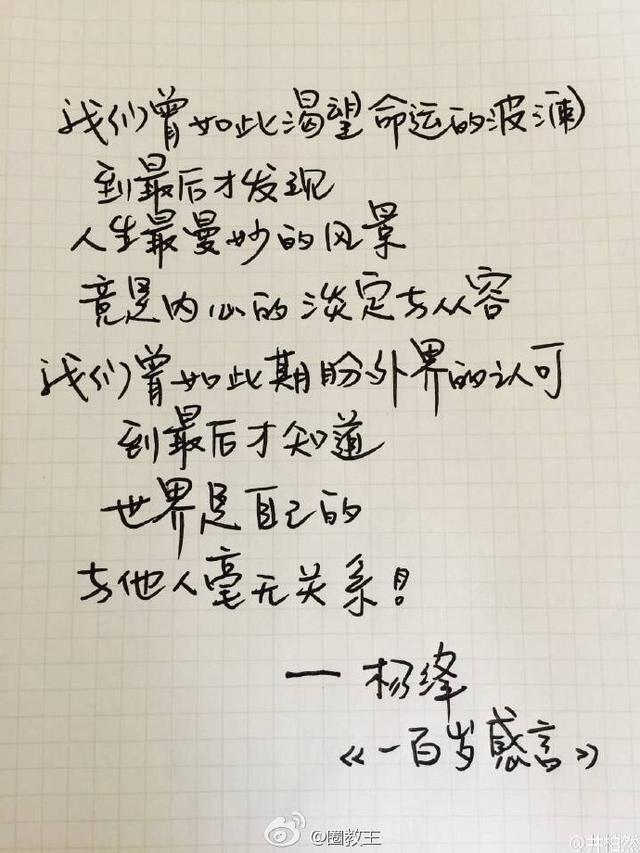 我们曾如此渴望命运的波澜
到最后才发现
人生最曼妙的风景
竟是内心的淡定与从容
我们曾如此期盼外界的认可
到最后才知道
世界是自己的
与他人毫无关系!
— 杨绛
《一百岁感言》
@圈教王
@井柏然